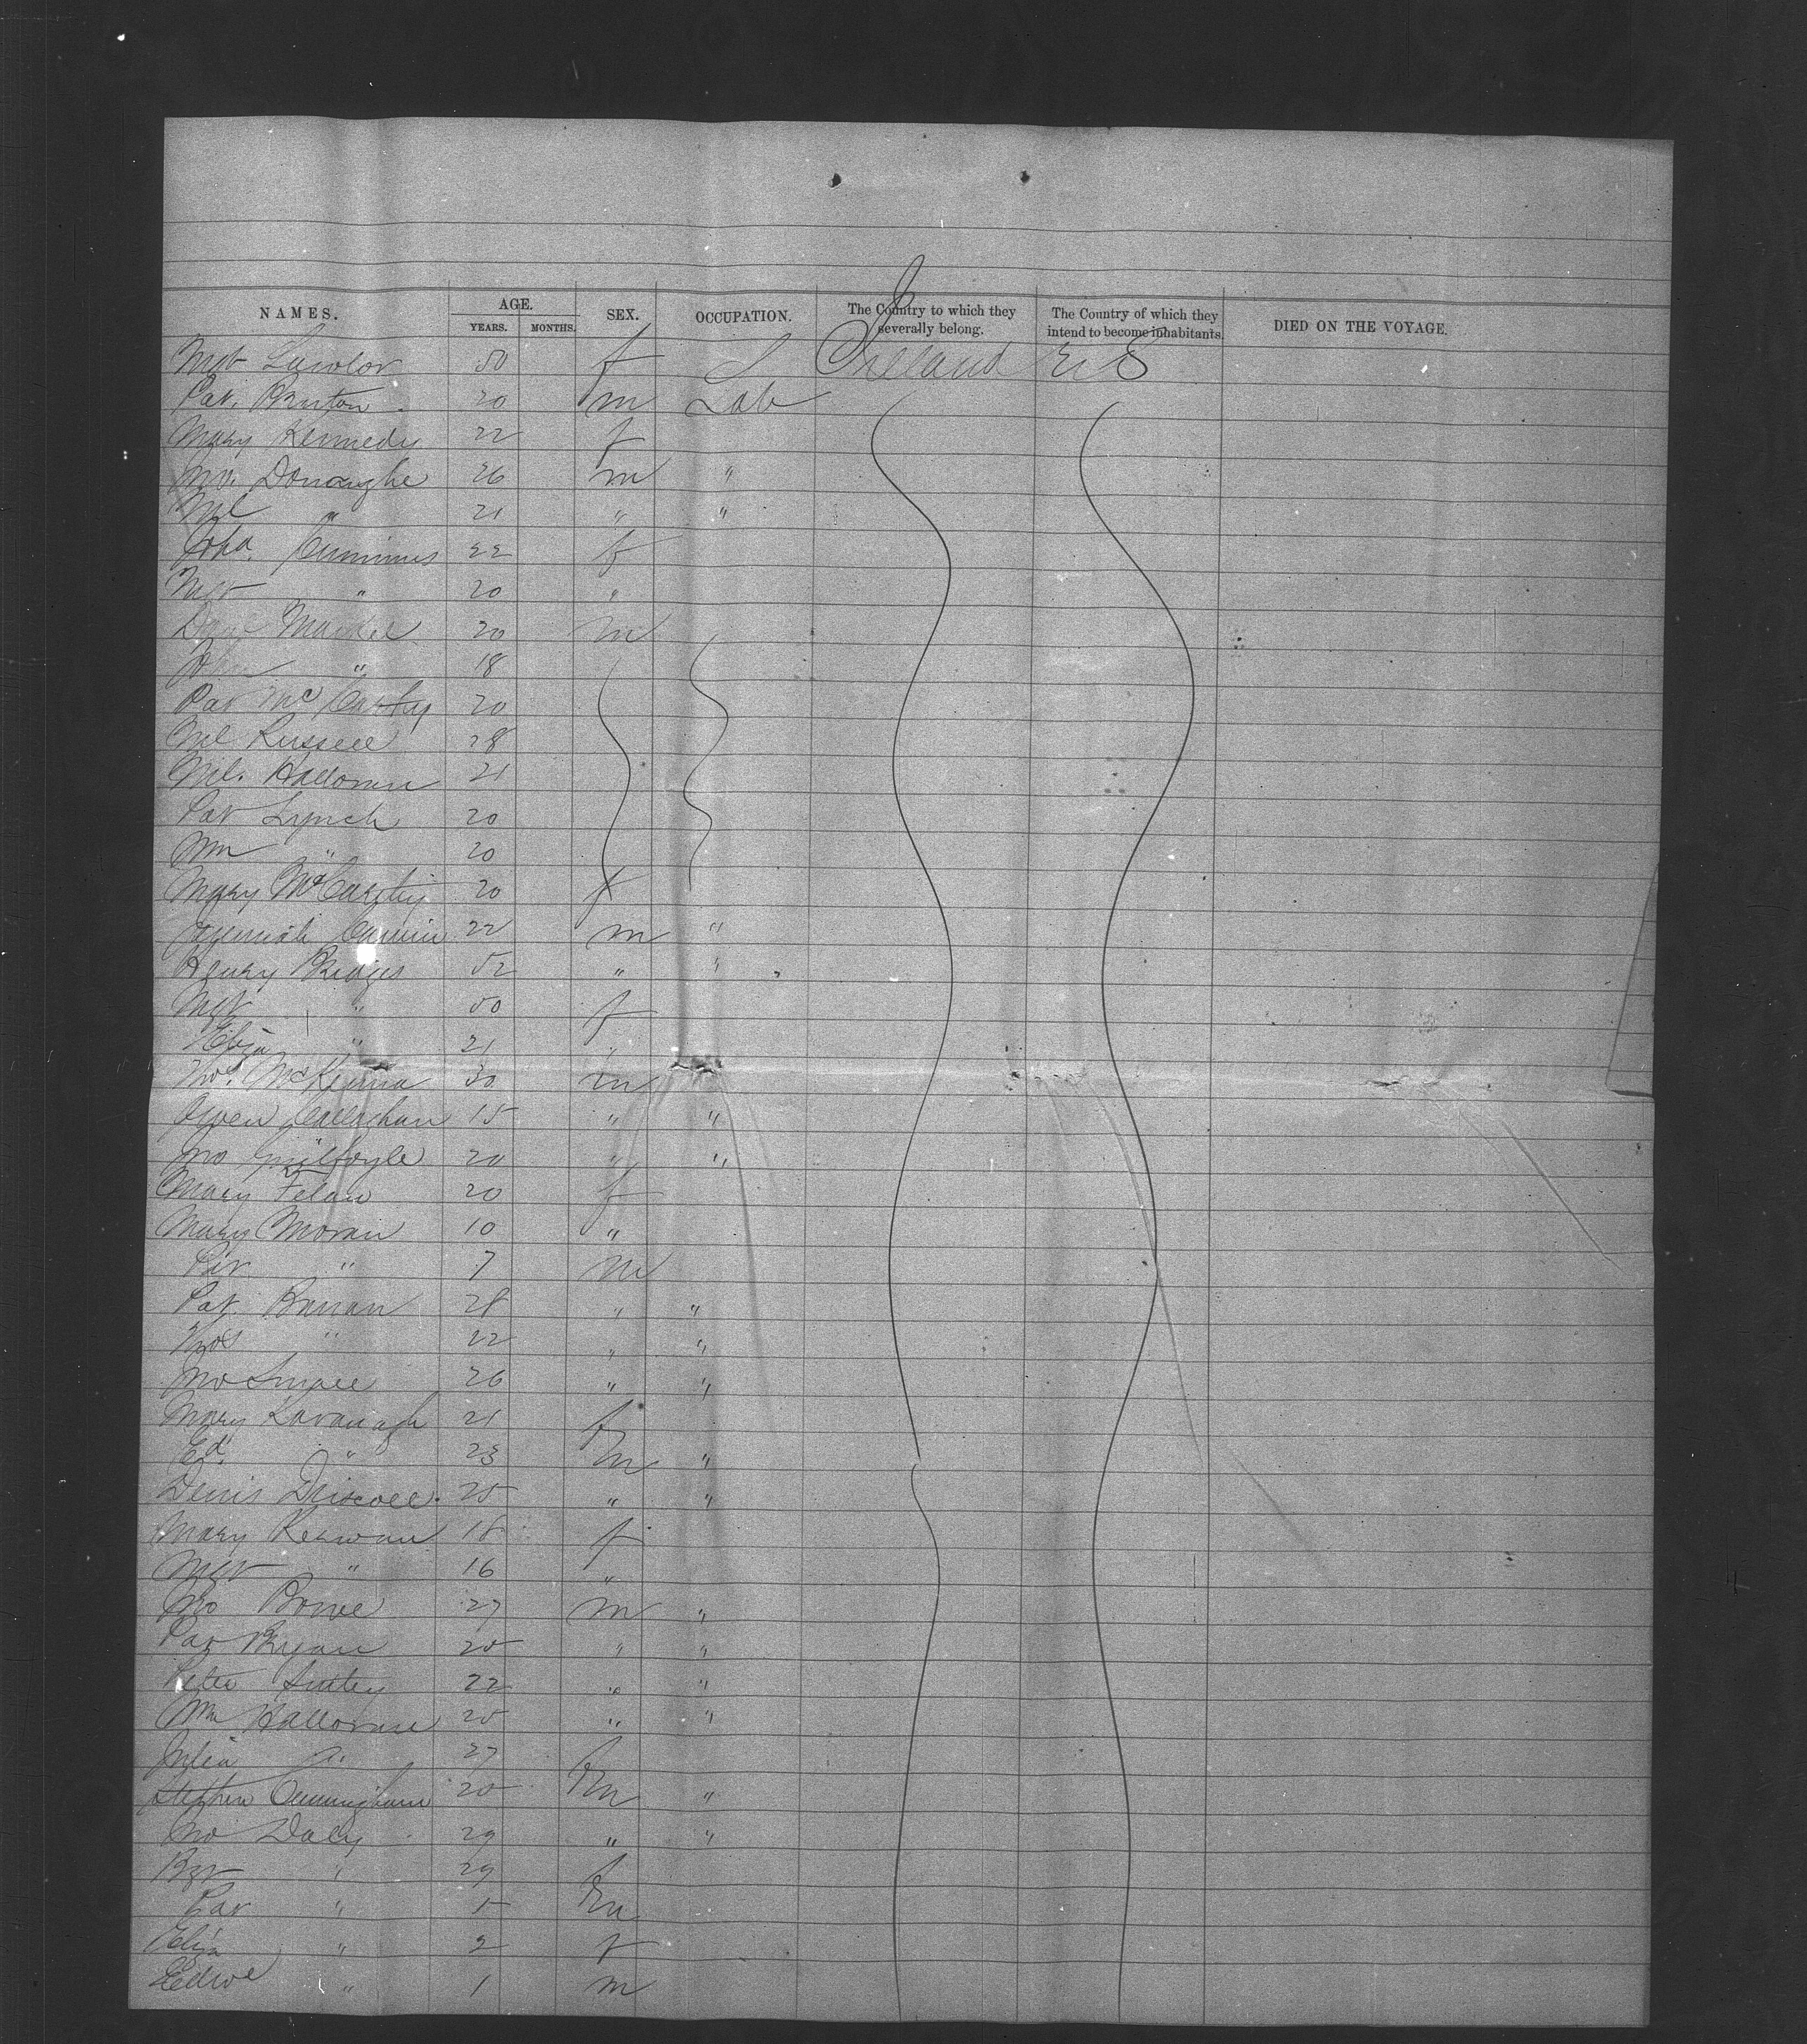 NAMES. AGE. SEX. OCCUPATION. The Country to which they severally belong. The Country of which they intend to become inhabitants. DIED ON THE VOYAGE.
YEARS. MONTHS.
Mgt Lawlor 50 f Ireland U S
Pat. Bruton 20 m Lab
Mary Kennedy 22 f
Jno. Donaughe 26 m "
Ml " 21 " "
Joha. Cummins 22 f
Mgt " 20 "
20 m
John " 18
Pat McCarthy 20
Ml Russell 28
Ml. Halloran 21
Pat Lynch 20
Wm " 20
Mary McCarthy 20 f
Jeremiah 22 m "
Henry Bridges 52 " "
Mgt " 50 f
Eliza " 21 "
Thos. McKenna 30 m
Owen Callaghan 15 " "
Jno Guilfoyle 20 " "
Mary Felan 20 f
Mary Moran 10 "
Pat " 7 m
Pat. 28 " "
Thos " 22 " "
Jno 26 " "
Mary Kavanagh 21 f
Ed. " 23 m "
Denis Driscoll 25 " "
Mary Kerwan 18 f
Mgt " 16 "
Jno Bowe 27 m "
Pat Ryan 25 " "
Peter 22 " "
Wm Halloran 25 " "
Julia " 27 f
Stephen Cunningham 25 m "
Jno Daly 29 " "
Bgt " 29 f
Pat " 5 m
Eliza " 2 f
Edwd " 1 m